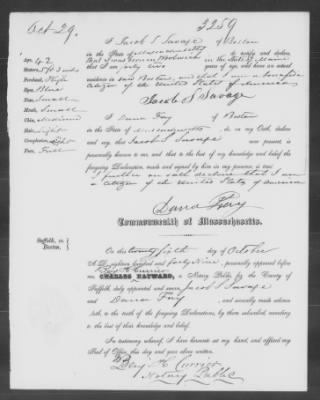 Oct 29.
3259
I Jacob S Savage of Boston
in the State of Massachusetts do certify and declare
that I was born in Woolwich in the State of Maine
that I am forty two years of age, and have an actual
residence in said Boston, and that I am a bonafide
citizen of the United States of America
Jacob S Savage
Age, 42
Stature, 5 ft 3 inches
Forehead, High
Eyes, Blue
Nose, Small
Mouth, Small
Chin, Medium
Hair, Light
Complexion, Light
Face, Full
I Dana Fay of Boston
in the State of Massachusetts do, on my Oath, declare
and say, that Jacob S Savage now present, is
personally known to me, and that to the best of my knowledge and belief the
foregoing Declaration, made and signed by him in my presence, is true
I further on oath declare that I am
a citizen of the United States of America
Dana Fay
Commonwealth of Massachusetts.
Suffolk, ss.
Boston.
On this twenty sixth day of October
A.D. eighteen hundred and forty nine, personally appeared before
me, Benj H Currier
CHARLES HAYWARD, a Notary Public, by the County of
Suffolk, duly appointed and sworn, Jacob S Savage
and Dana Fay, and severally made solemn
oath to the truth of the foregoing Declarations, by them subscribed, according
to the best of their knowledge and belief.
In testimony whereof, I have hereunto set my hand, and affixed my
Seal of Office, this day and year above written.
Benj H Currier
Notary Public